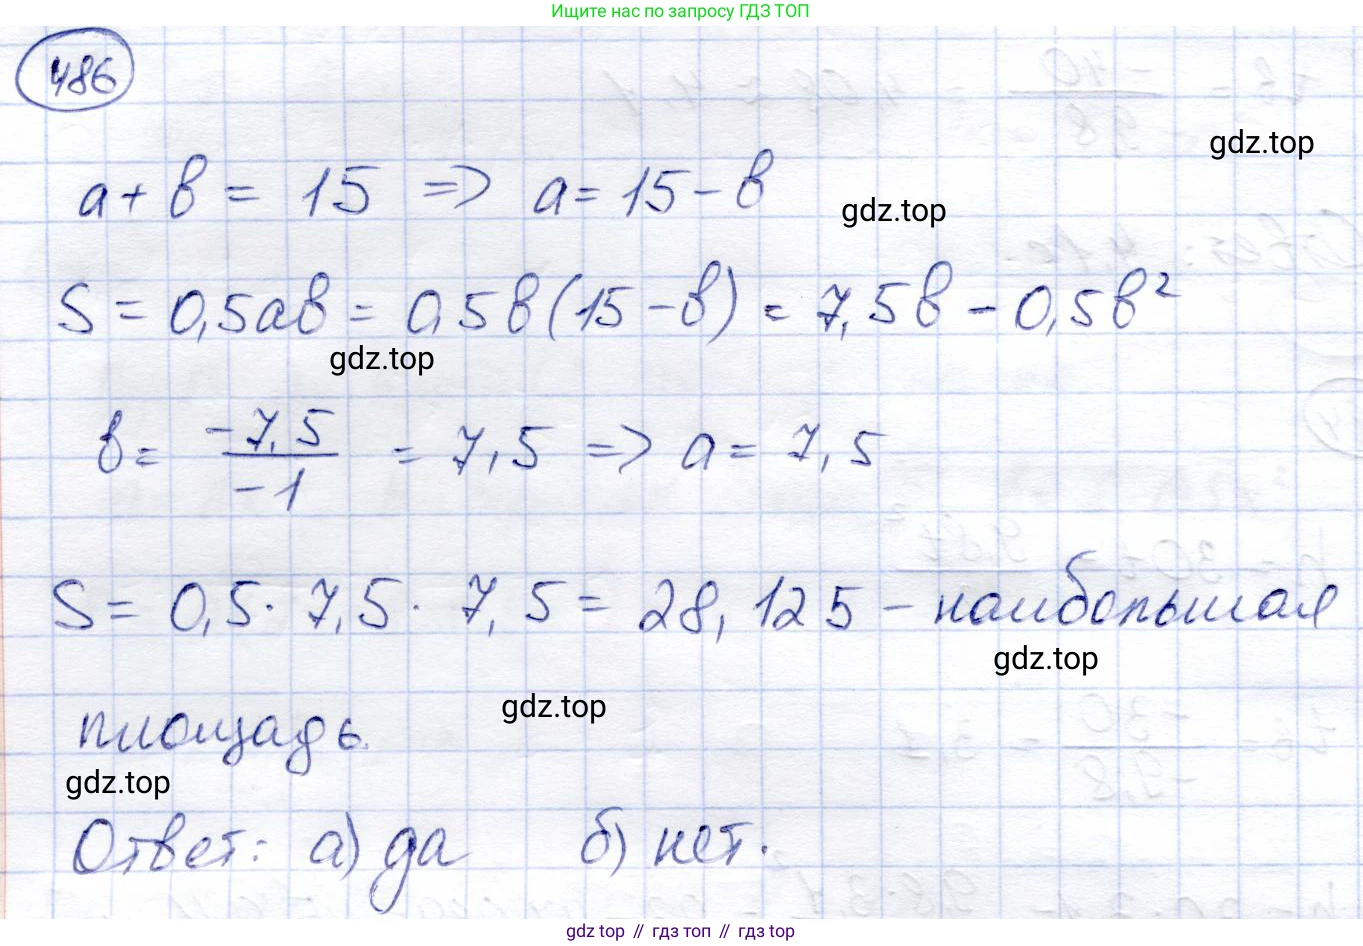 Ищите нас по запросу ГДЗ ТОП
486
gdz.top
a + b = 15 => a = 15 - b
gdz.top
S = 0,5ab = 0,5b(15 - b) = 7,5b - 0,5b²
gdz.top
b = -7,5 / -1 = 7,5 => a = 7,5
S = 0,5 · 7,5 · 7,5 = 28,125 - наибольшая
gdz.top
площадь.
gdz.top
gdz.top
Ответ: а) да б) нет.
gdz.top // гдз топ // гдз top